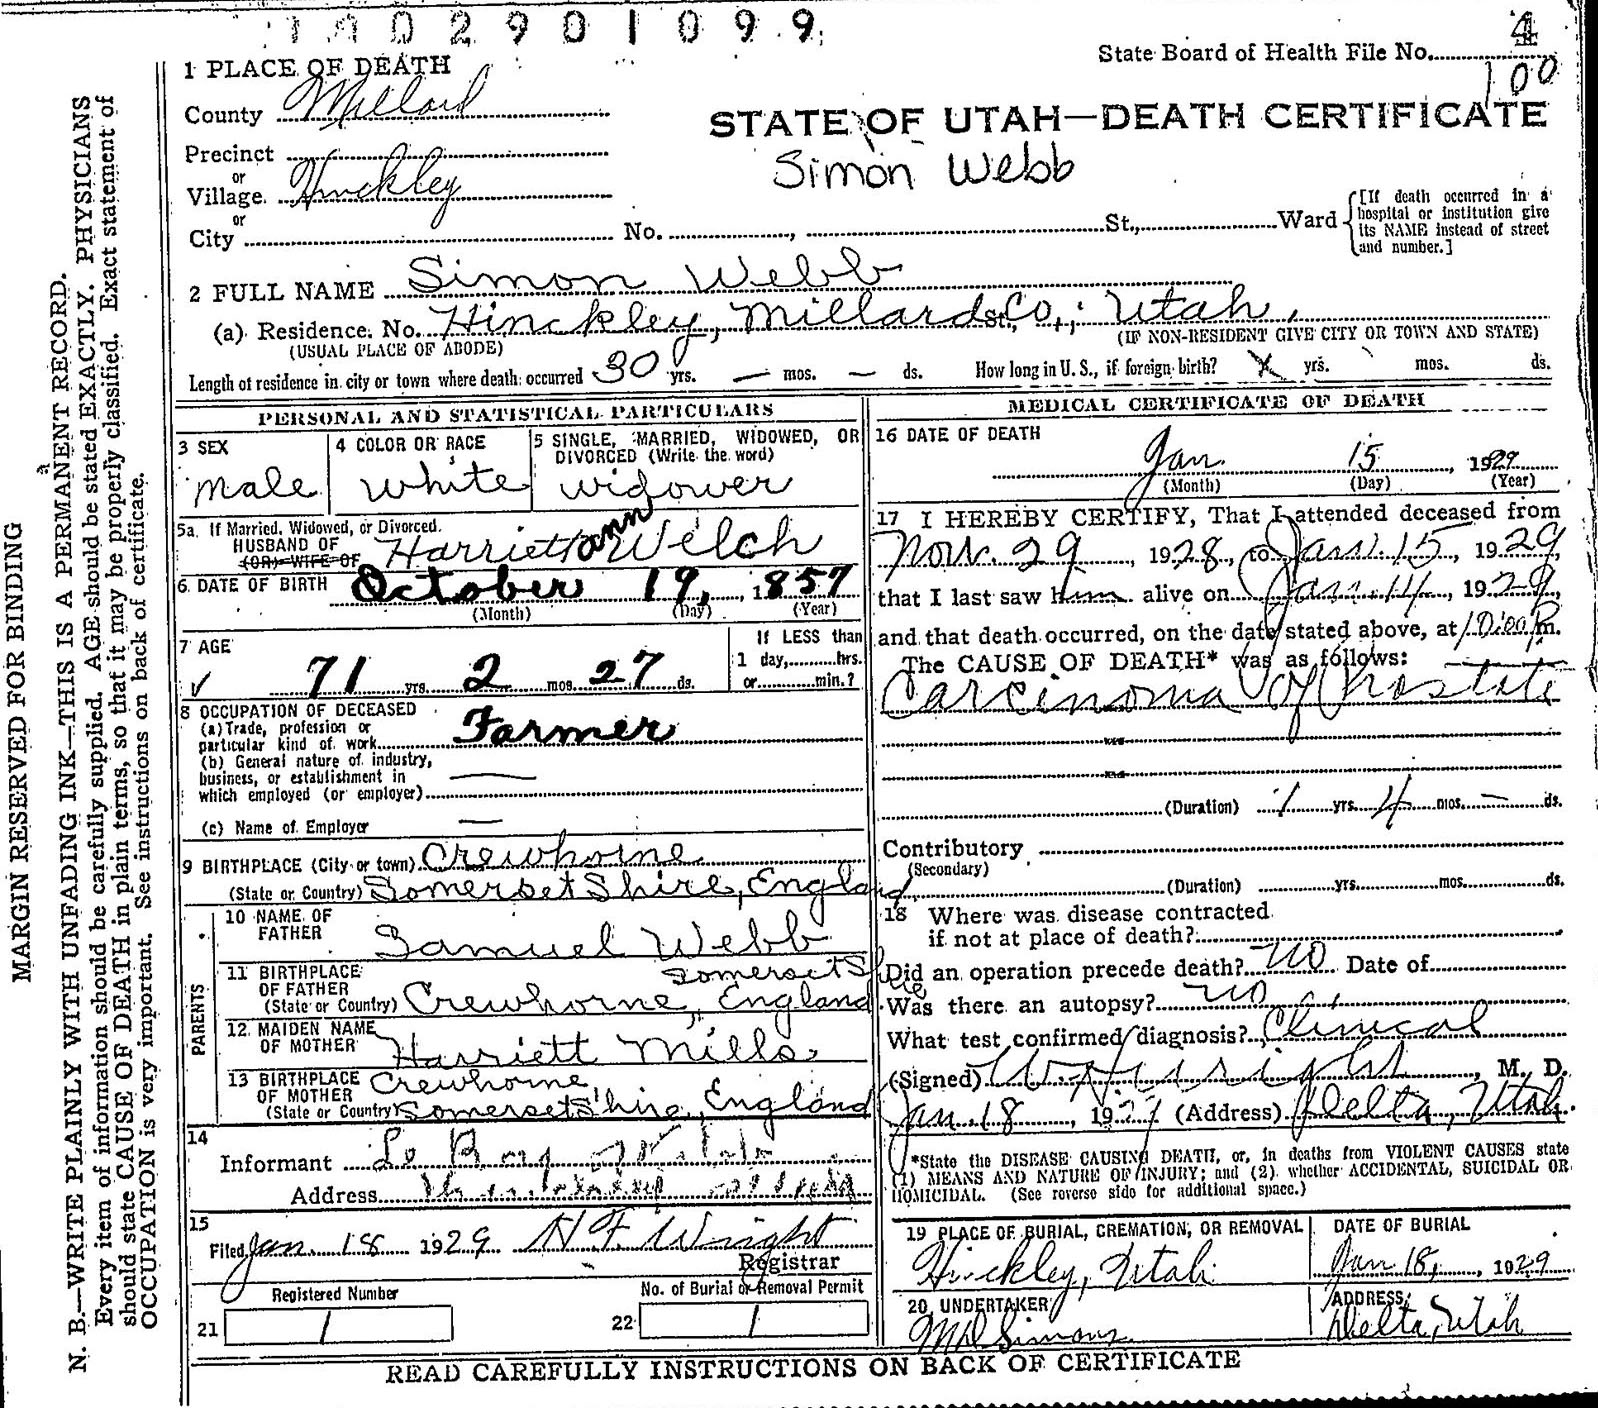 2901099
State Board of Health File No. 4
100
1 PLACE OF DEATH
County Millard
STATE OF UTAH—DEATH CERTIFICATE
Precinct
Simon Webb
or
Village Hinckley
or
City No. , St., Ward
[If death occurred in a
hospital or institution give
its NAME instead of street
and number.]
2 FULL NAME Simon Webb
(a) Residence. No. Hinckley, Millard St., Co., Utah.
(USUAL PLACE OF ABODE) (IF NON-RESIDENT GIVE CITY OR TOWN AND STATE)
Length of residence in city or town where death occurred 30 yrs. — mos. — ds. How long in U. S., if foreign birth? X yrs. mos. ds.
PERSONAL AND STATISTICAL PARTICULARS
3 SEX 4 COLOR OR RACE 5 SINGLE, MARRIED, WIDOWED, OR
DIVORCED (Write the word)
male white widower
5a If Married, Widowed, or Divorced.
HUSBAND OF Harriett ann Welch
(OR) WIFE OF
6 DATE OF BIRTH October 19, 1857
(Month) (Day) (Year)
7 AGE If LESS than
1 day, hrs.
✓ 71 yrs 2 mos 27 ds. or min.?
8 OCCUPATION OF DECEASED
(a) Trade, profession or
particular kind of work Farmer
(b) General nature of industry,
business, or establishment in
which employed (or employer) —
(c) Name of Employer —
9 BIRTHPLACE (City or town) Crewhorne
(State or Country) Somerset Shire, England
PARENTS
10 NAME OF
FATHER Samuel Webb
11 BIRTHPLACE Somerset Shire
OF FATHER
(State or Country) Crewhorne, England
12 MAIDEN NAME
OF MOTHER Harriett Mills
13 BIRTHPLACE Crewhorne,
OF MOTHER
(State or Country) Somerset Shire, England
14
Informant Le Roy
Address
15
Filed Jan. 18 1929 H F Wright
Registrar
Registered Number No. of Burial or Removal Permit
21 1 22 1
MEDICAL CERTIFICATE OF DEATH
16 DATE OF DEATH
Jan 15, 1929
(Month) (Day) (Year)
17 I HEREBY CERTIFY, That I attended deceased from
Nov. 29, 1928, to Jan. 15, 1929
that I last saw him alive on Jan. 14, 1929,
and that death occurred, on the date stated above, at 10:00 P m.
The CAUSE OF DEATH* was as follows:
Carcinoma of Prostate
(Duration) 1 yrs. 4 mos. — ds.
Contributory
(Secondary)
(Duration) yrs. mos. ds.
18 Where was disease contracted
if not at place of death?
Did an operation precede death? no Date of
Was there an autopsy? no
What test confirmed diagnosis? Clinical
(Signed) Wright, M. D.
Jan. 18, 1929 (Address) Delta, Utah.
*State the DISEASE CAUSING DEATH, or, in deaths from VIOLENT CAUSES state
(1) MEANS AND NATURE OF INJURY; and (2) whether ACCIDENTAL, SUICIDAL OR
HOMICIDAL. (See reverse side for additional space.)
19 PLACE OF BURIAL, CREMATION, OR REMOVAL DATE OF BURIAL
Hinckley, Utah. Jan 18, 1929
20 UNDERTAKER ADDRESS
Simons Delta, Utah
READ CAREFULLY INSTRUCTIONS ON BACK OF CERTIFICATE
MARGIN RESERVED FOR BINDING
N. B.—WRITE PLAINLY WITH UNFADING INK—THIS IS A PERMANENT RECORD.
Every item of information should be carefully supplied. AGE should be stated EXACTLY. PHYSICIANS
should state CAUSE OF DEATH in plain terms, so that it may be properly classified. Exact statement of
OCCUPATION is very important. See instructions on back of certificate.